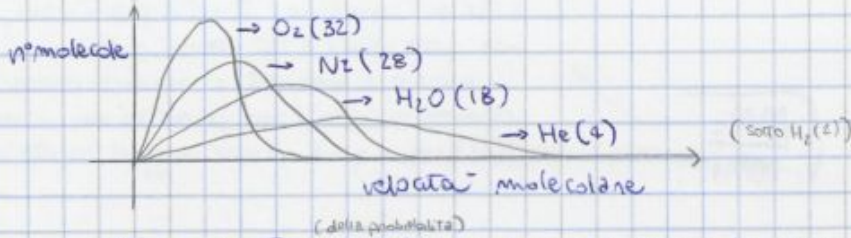 → O₂ (32)
n° molecole
→ N₂ (28)
→ H₂O (18)
→ He (4)
(sotto H₂ (2))
velocità molecolare
(della probabilità)